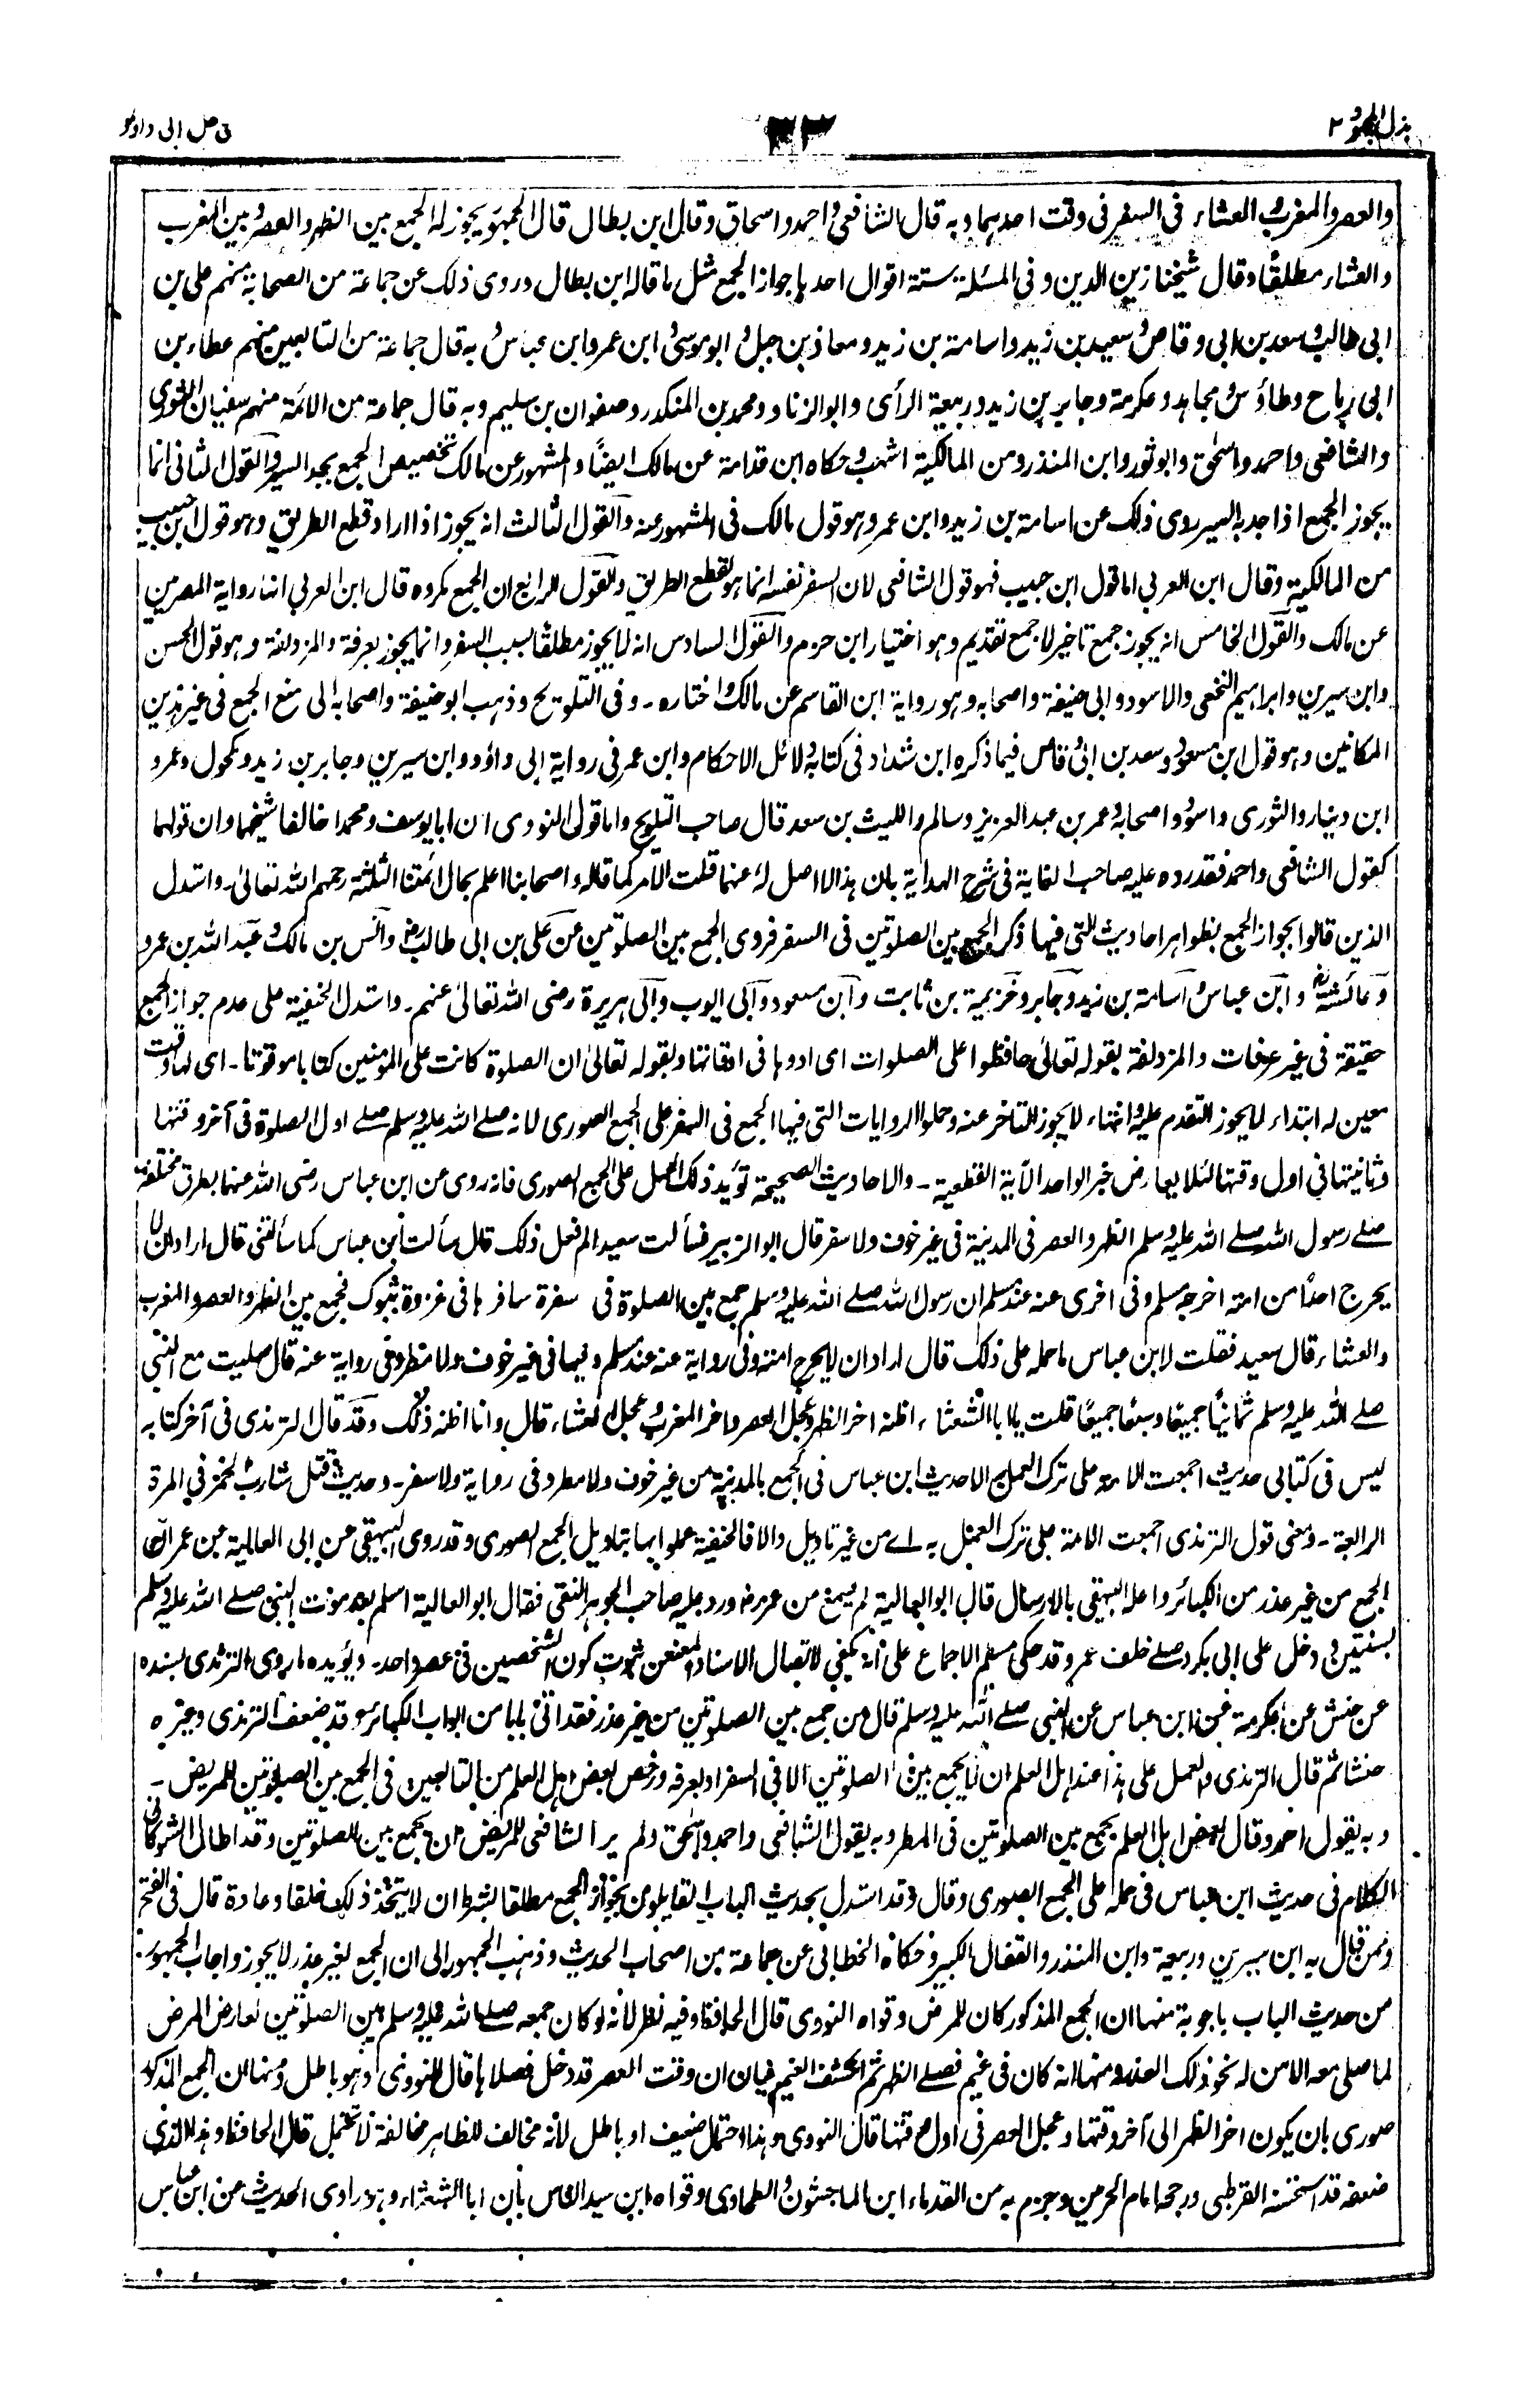 بذل المجهود ٢
٣٣
فى حل ابى داود
والعصر والمغرب والعشاء فى السفر فى وقت احدهما وبه قال الشافعى واحمد واسحاق وقال ابن بطال قال الجمهور يجوز له الجمع بين الظهر والعصر وبين المغرب
والعشاء مطلقًا وقال شيخنا زين الدين وفى المسئلة ستة اقوال احدها جواز الجمع مثل ما قاله ابن بطال وروى ذلك عن جماعة من الصحابة منهم على بن
ابى طالب وسعد بن ابى وقاص وسعيد بن زيد واسامة بن زيد ومعاذ بن جبل وابو موسى وابن عمر وابن عباس وبه قال جماعة من التابعين منهم عطاء بن
ابى رباح وطاؤس ومجاهد وعكرمة وجابر بن زيد وربيعة الرأى وابو الزناد ومحمد بن المنكدر وصفوان بن سليم وبه قال جماعة من الائمة منهم سفيان الثورى
والشافعى واحمد واسحٰق وابو ثور وابن المنذر ومن المالكية اشهب وحكاه ابن قدامة عن مالك ايضًا والمشهور عن مالك تخصيص الجمع بجد السير والقول الثانى انما
يجوز الجمع اذا جد به السير روى ذلك عن اسامة بن زيد وابن عمر وهو قول مالك فى المشهور عنه والقول الثالث انه يجوز اذا اراد قطع الطريق وهو قول ابن حبيب
من المالكية وقال ابن العربى اما قول ابن حبيب فهو قول الشافعى لان السفر نفسه انما هو لقطع الطريق والقول الرابع ان الجمع مكروه قال ابن العربى انها رواية المصريين
عن مالك والقول الخامس انه يجوز جمع تاخير لا جمع تقديم وهو اختيار ابن حزم والقول السادس انه لا يجوز مطلقًا بسبب السفر وانما يجوز بعرفة والمزدلفة وهو قول الحسن
وابن سيرين وابراهيم النخعى والاسود وابى حنيفة واصحابه وهو رواية ابن القاسم عن مالك واختاره - وفى التلويح وذهب ابو حنيفة واصحابه الى منع الجمع فى غير هذين
المكانين وهو قول ابن مسعود وسعد بن ابى وقاص فيما ذكره ابن شداد فى كتابه دلائل الاحكام وابن عمر فى رواية ابى داؤد وابن سيرين وجابر بن زيد ومكحول وعمرو
ابن دينار والثورى واسود واصحابه وعمر بن عبد العزيز وسالم والليث بن سعد قال صاحب التلويح واما قول النووى ان ابا يوسف ومحمدا خالفا شيخهما وان قولهما
كقول الشافعى واحمد فقد رده عليه صاحب الغاية فى شرح الهداية بان هذا لا اصل له عنهما قلت الامر كما قاله واصحابنا اعلم بحال ائمتنا الثلثة رحمهم الله تعالى - واستدل
الذين قالوا بجواز الجمع بظواهر احاديث التى فيها ذكر الجمع بين الصلوتين فى السفر فروى الجمع بين الصلوتين عن على بن ابى طالب وانس بن مالك وعبد الله بن عمرو
وعائشة رض وابن عباس واسامة بن زيد وجابر وخزيمة بن ثابت وابن مسعود وابى ايوب وابى هريرة رضى الله تعالى عنهم - واستدل الحنفية على عدم جواز الجمع
حقيقة فى غير عرفات والمزدلفة بقوله تعالى حافظوا على الصلوات اى ادوها فى اوقاتها وبقوله تعالى ان الصلوة كانت على المؤمنين كتابا موقوتا - اى لها وقت
معين له ابتداء لا يجوز التقدم عليه وانتهاء لا يجوز التاخر عنه وحملوا الروايات التى فيها الجمع فى السفر على الجمع الصورى لانه صلے الله عليه وسلم صلے اول الصلوة فى آخر وقتها
وثانيتها فى اول وقتها لئلا يعارض خبر الواحد الآية القطعية - والاحاديث الصحيحة تؤيد ذلك الحمل على الجمع الصورى فانه روى عن ابن عباس رضى الله عنهما بطرق مختلفة
صلے رسول الله صلے الله عليه وسلم الظهر والعصر فى المدينة فى غير خوف ولا سفر قال ابو الزبير فسألت سعيد الم فعل ذلك قال سألت ابن عباس كما سألتنى قال اراد ان لا
يحرج احدًا من امته اخرجه مسلم وفى اخرى عنه عند مسلم ان رسول الله صلے الله عليه وسلم جمع بين الصلوة فى سفرة سافرها فى غزوة تبوك فجمع بين الظهر والعصر والمغرب
والعشاء قال سعيد فقلت لابن عباس ما حمله على ذلك قال اراد ان لا يحرج امته وفى رواية عنه عند مسلم وفيها فى غير خوف ولا مطر وفى رواية عنه قال صليت مع النبى
صلے الله عليه وسلم ثمانيًا جميعًا وسبعًا جميعًا قلت يا ابا الشعثاء اظنه اخر الظهر وعجل العصر واخر المغرب وعجل العشاء قال وانا اظنه ذلك وقد قال الترمذى فى آخر كتابه
ليس فى كتابى حديث اجمعت الامة على ترك العمل به الا حديث ابن عباس فى الجمع بالمدينة من غير خوف ولا مطر وفى رواية ولا سفر - وحديث قتل شارب الخمر فى المرة
الرابعة - ومعنى قول الترمذى اجمعت الامة على ترك العمل به اے من غير تاويل والا فالحنفية عملوا بها بتاويل الجمع الصورى وقد روى البيهقى عن ابى العالية عن عمر ان
الجمع من غير عذر من الكبائر واعله البيهقى بالارسال قال ابو العالية لم يسمع من عمر رض ورد عليه صاحب الجوهر النقى فقال ابو العالية اسلم بعد موت النبى صلے الله عليه وسلم
بسنتين ودخل على ابى بكر وصلے خلف عمر وقد حكى مسلم الاجماع على انه يكفى لاتصال الاسناد المعنعن ثبوت كون الشخصين فى عصر واحد - ويؤيده ما روى الترمذى بسنده
عن حنش عن عكرمة عن ابن عباس عن النبى صلے الله عليه وسلم قال من جمع بين الصلوتين من غير عذر فقد اتى بابا من ابواب الكبائر وقد ضعف الترمذى وغيره
حنشا ثم قال الترمذى والعمل على هذا عند اهل العلم ان لا يجمع بين الصلوتين الا فى السفر او بعرفة ورخص بعض اهل العلم من التابعين فى الجمع بين الصلوتين للمريض -
وبه يقول احمد وقال بعض اهل العلم يجمع بين الصلوتين فى المطر وبه يقول الشافعى واحمد واسحٰق ولم ير الشافعى للمريض ان يجمع بين الصلوتين وقد اطال الشوكانى
الكلام فى حديث ابن عباس فى حمله على الجمع الصورى وقال وقد استدل بحديث الباب القايلون بجواز الجمع مطلقا بشرط ان لا يتخذ ذلك خلقا وعادة قال فى الفتح
وممن قال به ابن سيرين وربيعة وابن المنذر والقفال الكبير وحكاه الخطابى عن جماعة من اصحاب الحديث وذهب الجمهور الى ان الجمع لغير عذر لا يجوز واجاب الجمهور
من حديث الباب باجوبة منها ان الجمع المذكور كان للمرض وقواه النووى قال الحافظ وفيه نظر لانه لو كان جمعه صلے الله عليه وسلم بين الصلوتين لعارض المرض
لما صلى معه الا من له نحو ذلك العذر ومنها انه كان فى غيم فصلے الظهر ثم انكشف الغيم فبان ان وقت العصر قد دخل فصلاها قال النووى وهو باطل ومنها ان الجمع المذكور
صورى بان يكون اخر الظهر الى آخر وقتها وعجل العصر فى اول وقتها قال النووى وهذا احتمال ضعيف او باطل لانه مخالف للظاهر مخالفة لا تحتمل قال الحافظ وهذا الذى
ضعفه قد استحسنه القرطبى ورجحه امام الحرمين وجزم به من القدماء ابن الماجشون والطحاوى وقواه ابن سيد الناس بان ابا الشعثاء وهو راوى الحديث عن ابن عباس